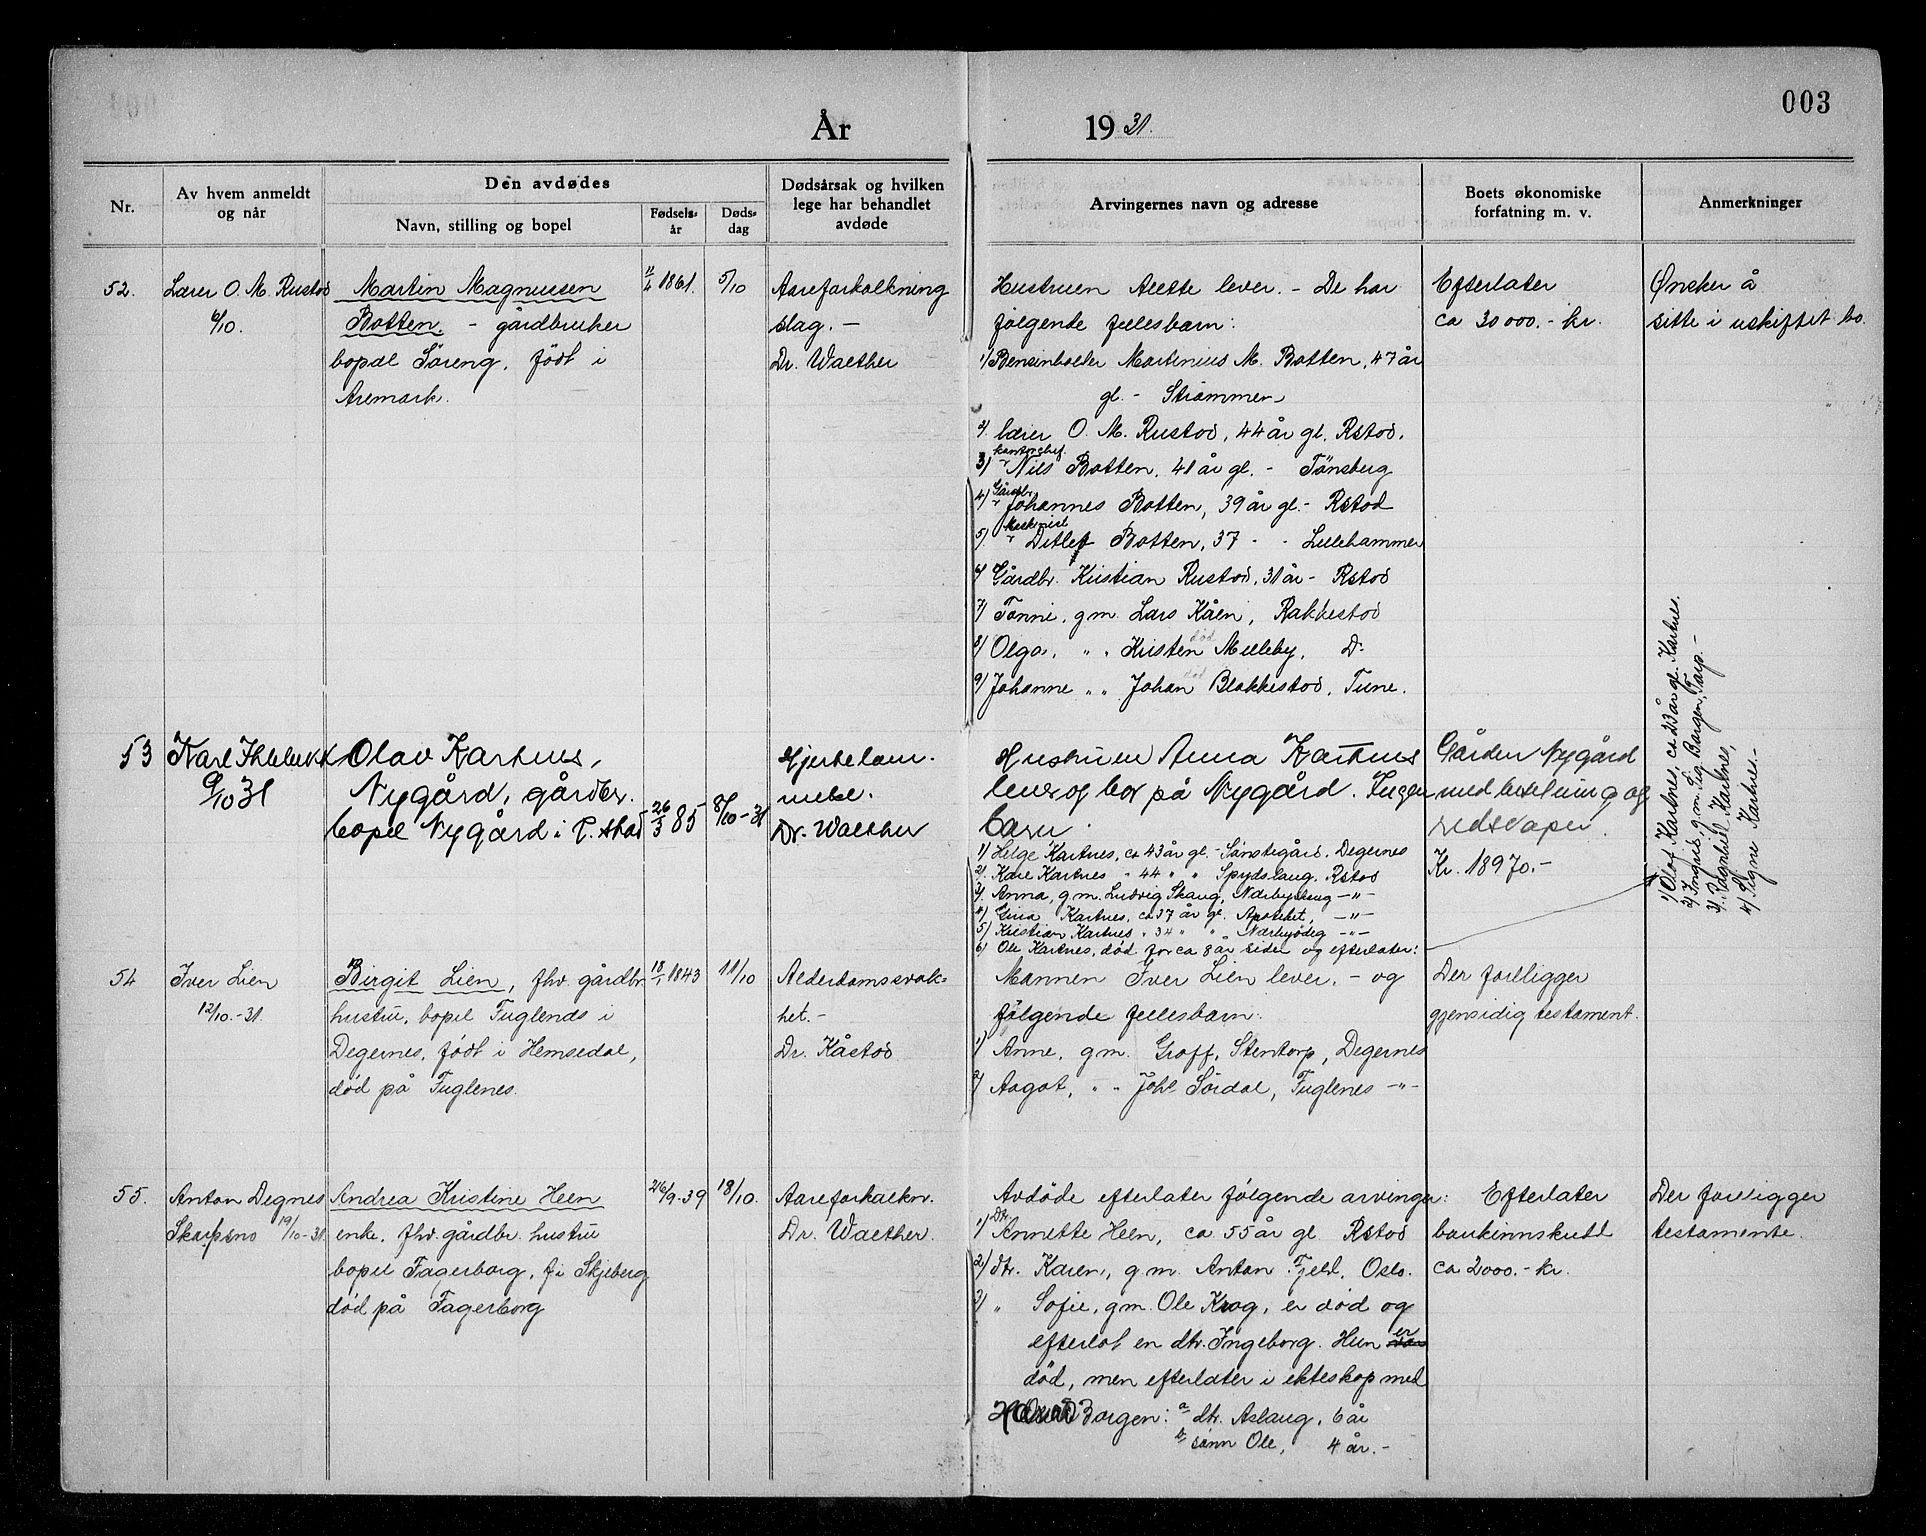 003
År 1931.
Nr.
Av hvem anmeldt og når
Den avdødes
Navn, stilling og bopel
Fødselsår
Dødsdag
Dødsårsak og hvilken lege har behandlet avdøde
Arvingernes navn og adresse
Boets økonomiske forfatning m. v.
Anmerkninger
52.
Lærer O. M. Rustad
6/10.
Martin Magnussen
Botten. - gårdbruker
bopel Söreng, födt i
Aremark.
11/4 1861.
5/10
Aareforkalkning
slag. -
Dr. Walther
Hustruen Alette lever. - De har
følgende fellesbarn:
1) Bensinhandler Martinius M. Botten, 47 år
gl. - Strømmen
2) lærer O. M. Rustad, 44 år gl. Rstad.
3) kontorchef Nils Botten, 41 år gl. - Tönsberg
4) Gårdbr. Johannes Botten, 39 år gl. - Rstad
5) Maskinist Ditlef Botten, 37 - - Lillehammer
6) Gårdbr. Kristian Rustad, 31 år - Rstad
7) Tonni, g.m. Lars Kåen, Rakkestad
8) Olga, " " Kristen Melleby, D-
død
9) Johanne " " Johan Blakkestad, Tune.
Efterlater
ca 30 000.- kr.
Ønsker å
sitte i uskiftet bo.
53
Karl
9/10 31
Olav Kartnes,
Nygård, gårdbr.
bopel Nygård i R.stad
26/3 85
8/10-31
Hjertelam-
melse.
Dr. Walther
Hustruen Anna Kartnes
lever og bor på Nygård. Ingen
barn.
1) Helge Kartnes, ca 43 år gl. - Sönstegård. Degernes
2) Karl Kartnes " 44 " " Spydslaug. Rstad
3) Anna, g.m. Ludvig Skaug, -"-
4) Gina Kartnes, ca 37 år gl. Apoteket, -"-
5) Kristian Kartnes " 34 " " Nærbyödeg -"-
6) Ole Kartnes, død for ca 8 år siden og efterlater:
Gården Nygård
med besetning og
redskaper.
Kr. 18970.-
1) Olaf Kartnes, ca 23 år gl. Kartnes.
2) Ingrid, g.m. Sig. Borgen, Torp. -
3) Ragnhil Kartnes,
4) Signe Kartnes. -
54
Iver Lien
12/10.-31.
Birgit Lien, fhv. gårdbr.
hustru, bopel Fuglenes i
Degernes, født i Hemsedal,
död på Fuglenes.
18/1 1843
11/10
Alderdomssvak-
het. -
Dr. Kåstad
Mannen Iver Lien lever. - og
følgende fellesbarn:
1) Anne, g.m. Graff, Stentorp, Degernes
2) Aagot, " " Johs Sördal, Fuglenes -"-
Der foreligger
gjensidig testament.
55.
Anton Degnes
Skarpsno 19/10-31.
Andrea Kristine Heen
enke, fhv. gårdbr. hustru
bopel Fagerborg, f. i Skjeberg
död på Fagerborg
26/9-39
18/10.
Aareforkalkn.
Dr. Walther.
Avdöde efterlater følgende arvinger:
1) Dtr. Annette Heen, ca 55 år gl Rstad
2) dtr. Karen, g.m. Anton Fjeld, Oslo.
3) " Sofie, g.m. Ole Krog, er död og
efterlot en dtr. Ingeborg. Hun er
död, men efterlater i ekteskap med
Borgen: a dtr. Aslaug, 6 år
b sönn Ole, 4 år. -
Efterlater
bankinnskudd
ca 2000.- kr.
Der foreligger
testamente.